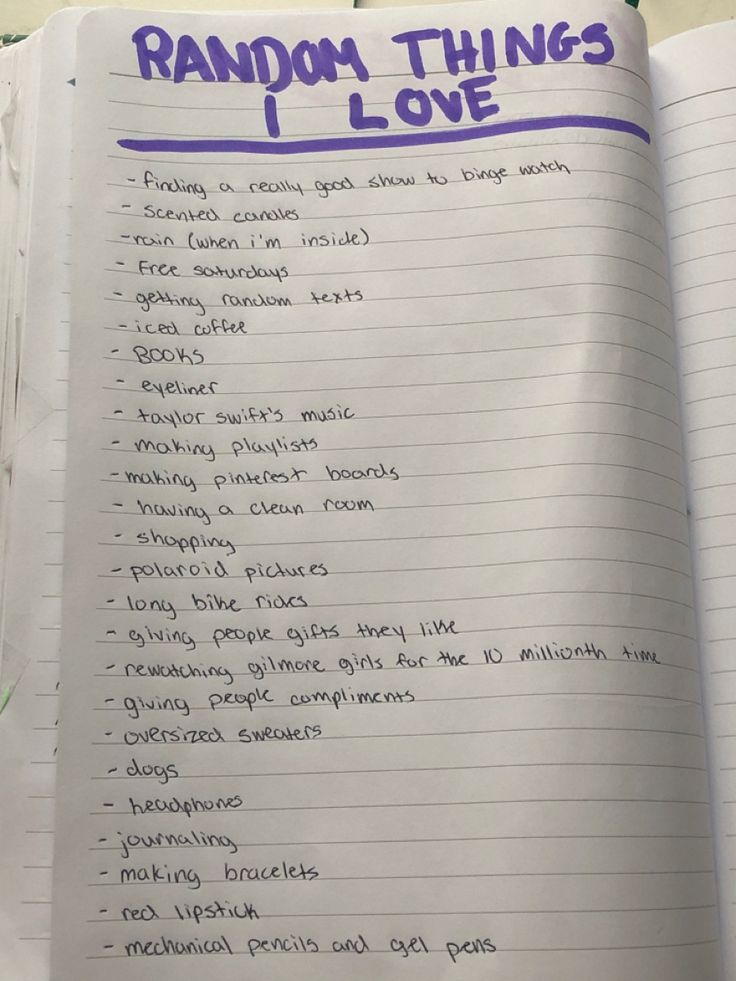 RANDOM THINGS
I LOVE
- finding a really good show to binge watch
- scented candles
- rain (when i'm inside)
- Free saturdays
- getting random texts
- iced coffee
- BOOKS
- eyeliner
- taylor swift's music
- making playlists
- making pinterest boards
- having a clean room
- shopping
- polaroid pictures
- long bike rides
- giving people gifts they like
- rewatching gilmore girls for the 10 millionth time
- giving people compliments
- oversized sweaters
- dogs
- headphones
- journaling
- making bracelets
- red lipstick
- mechanical pencils and gel pens